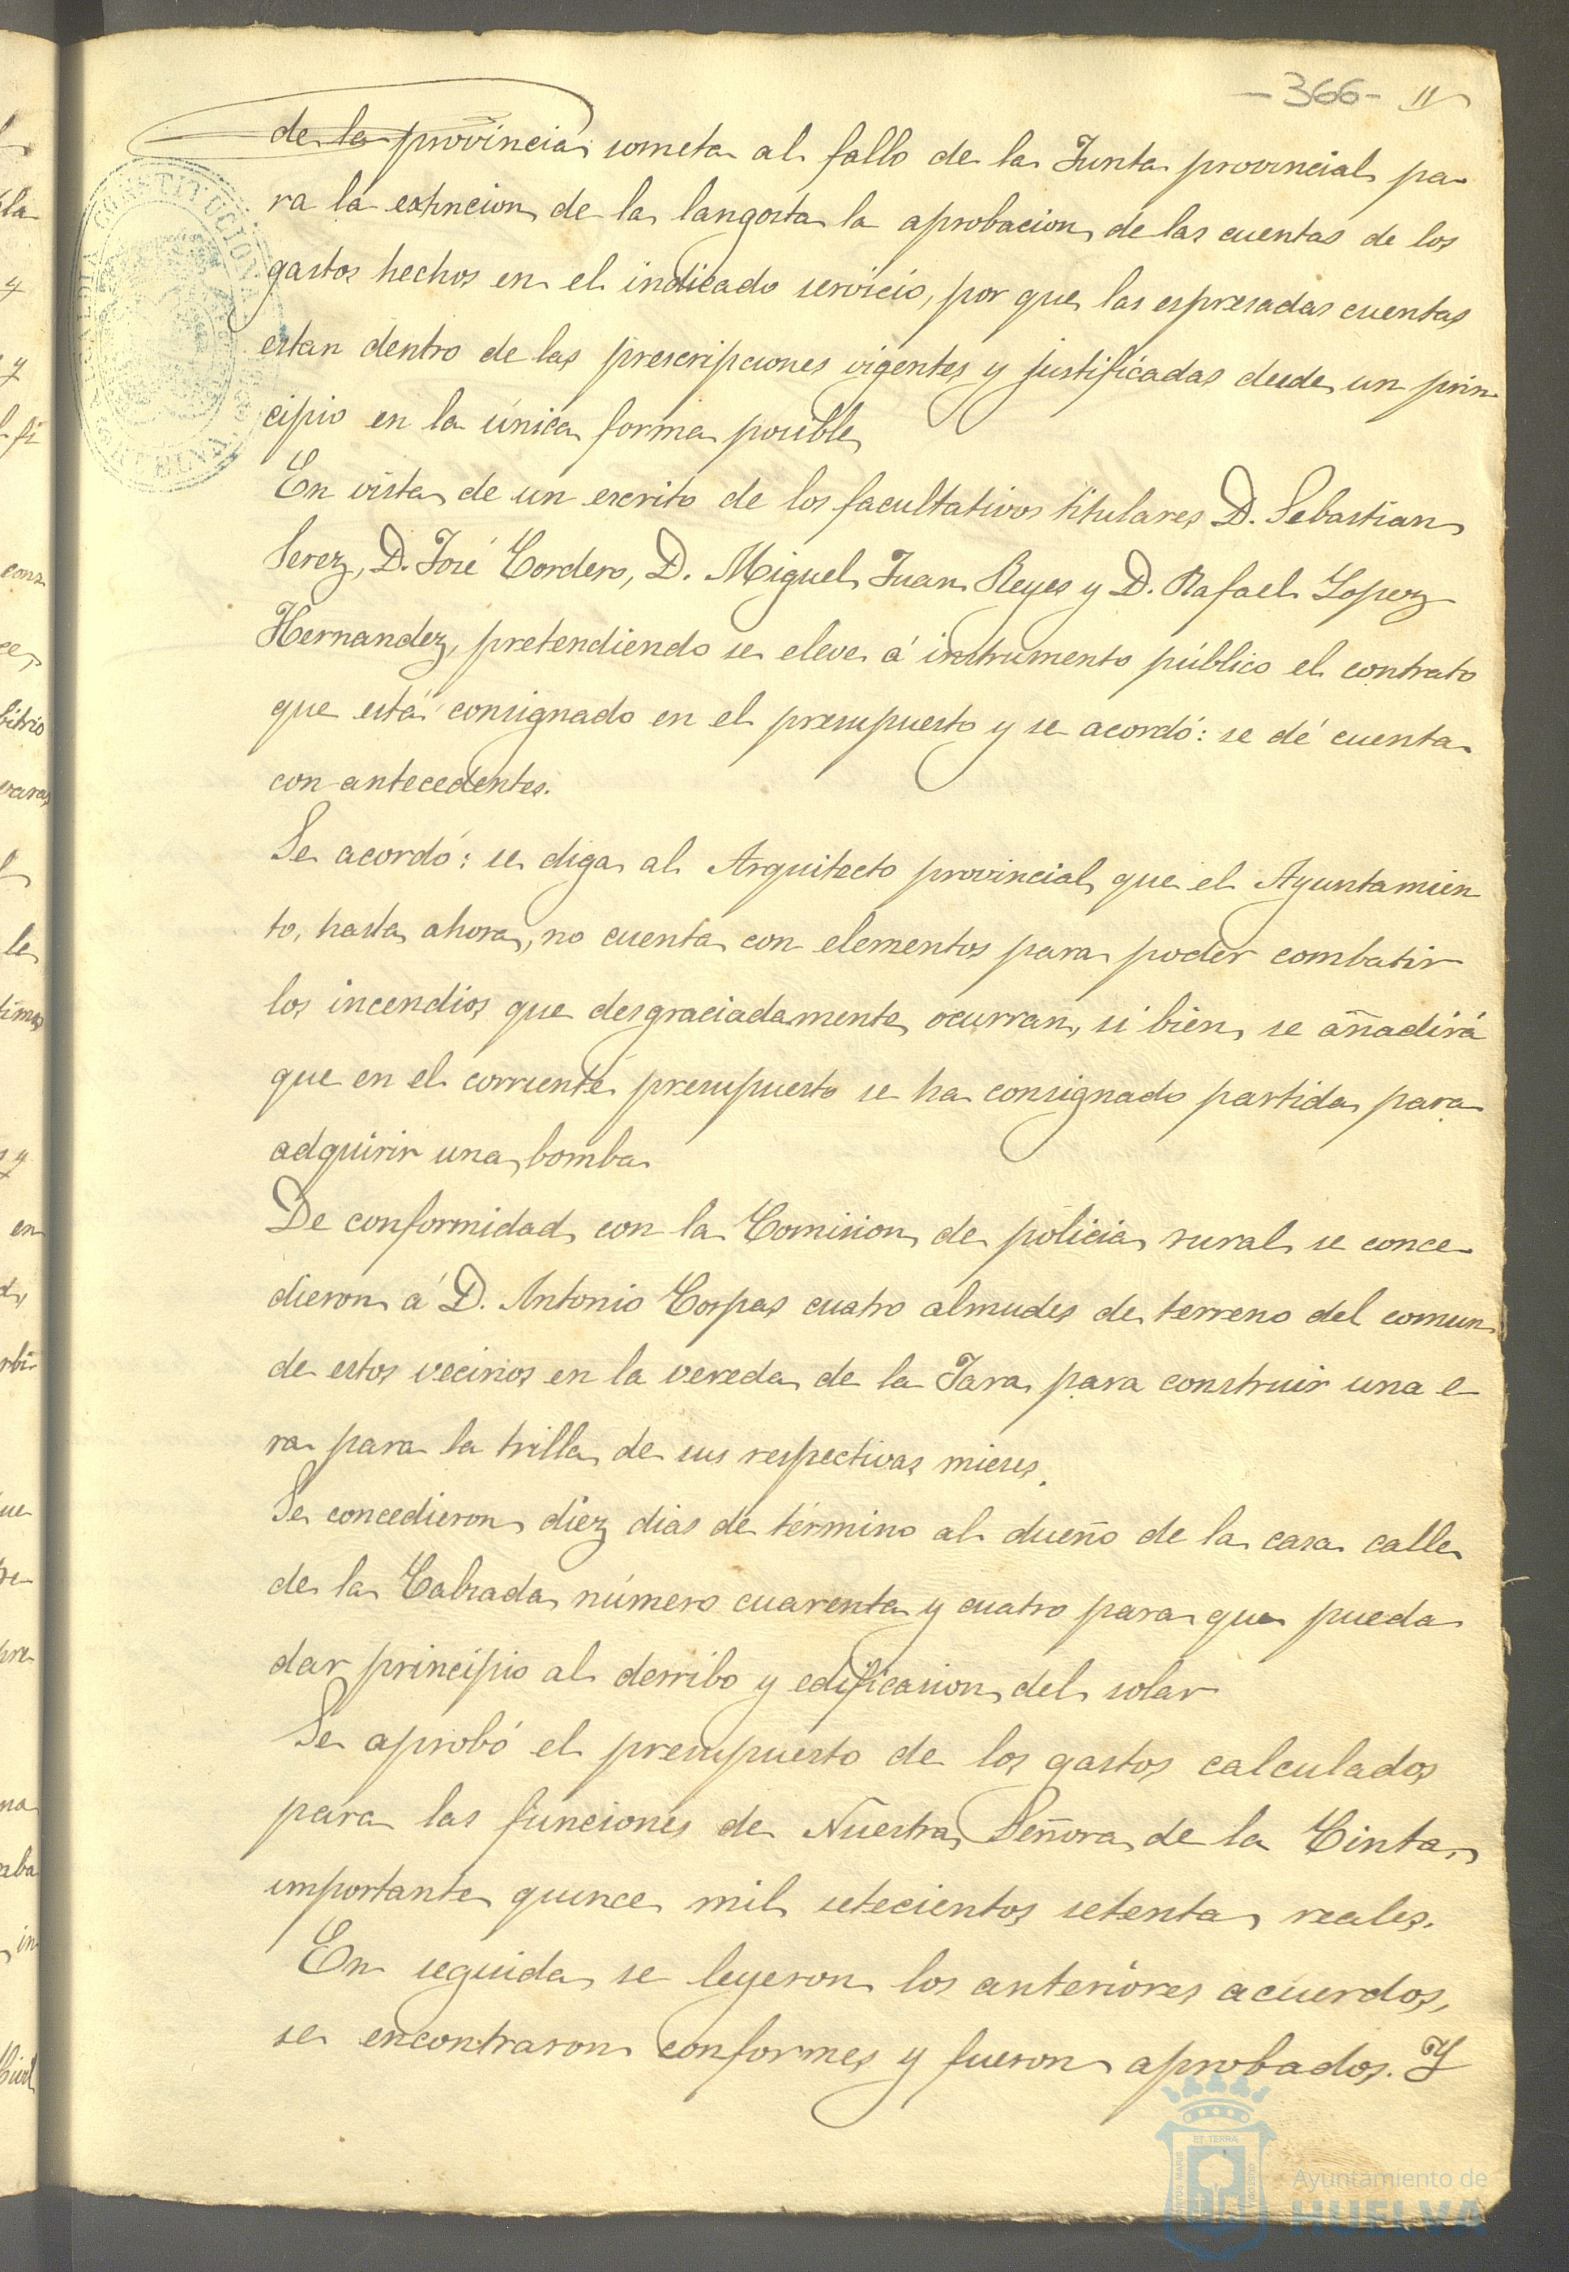 -366- 11
de la provincia, someta al fallo de la Junta provincial pa
ra la extincion de la langosta la aprobacion de las cuentas de los
gastos hechos en el indicado servicio, por que las espresadas cuentas
estan dentro de las prescripciones vigentes y justificadas desde un prin
cipio en la única forma posible
En vista de un escrito de los facultativos titulares D. Sebastian
Perez, D. José Cordero, D. Miguel Juan Reyes y D. Rafael Lopez
Hernandez, pretendiendo se eleve á instrumento público el contrato
que está consignado en el presupuesto y se acordó: se dé cuenta
con antecedentes.
Se acordó: se diga al Arquitecto provincial que el Ayuntamien
to, hasta ahora, no cuenta con elementos para poder combatir
los incendios que desgraciadamente ocurran, si bien se añadirá
que en el corriente presupuesto se ha consignado partida para
adquirir una bomba
De conformidad con la Comision de policia rural se conce
dieron á D. Antonio Corpas cuatro almudes de terreno del comun
de estos vecinos en la vereda de la Jara para construir una e
ra para la trilla de sus respectivas mieses.
Se concedieron diez dias de término al dueño de la casa calle
de la Calzada número cuarenta y cuatro para que pueda
dar principio al derribo y edificasion del solar
Se aprobó el presupuesto de los gastos calculados
para las funciones de Nuestra Señora de la Cinta,
importante quince mil setecientos setenta reales.
En seguida se leyeron los anteriores acuerdos,
se encontraron conformes y fueron aprobados. Y
Ayuntamiento de
HUELVA